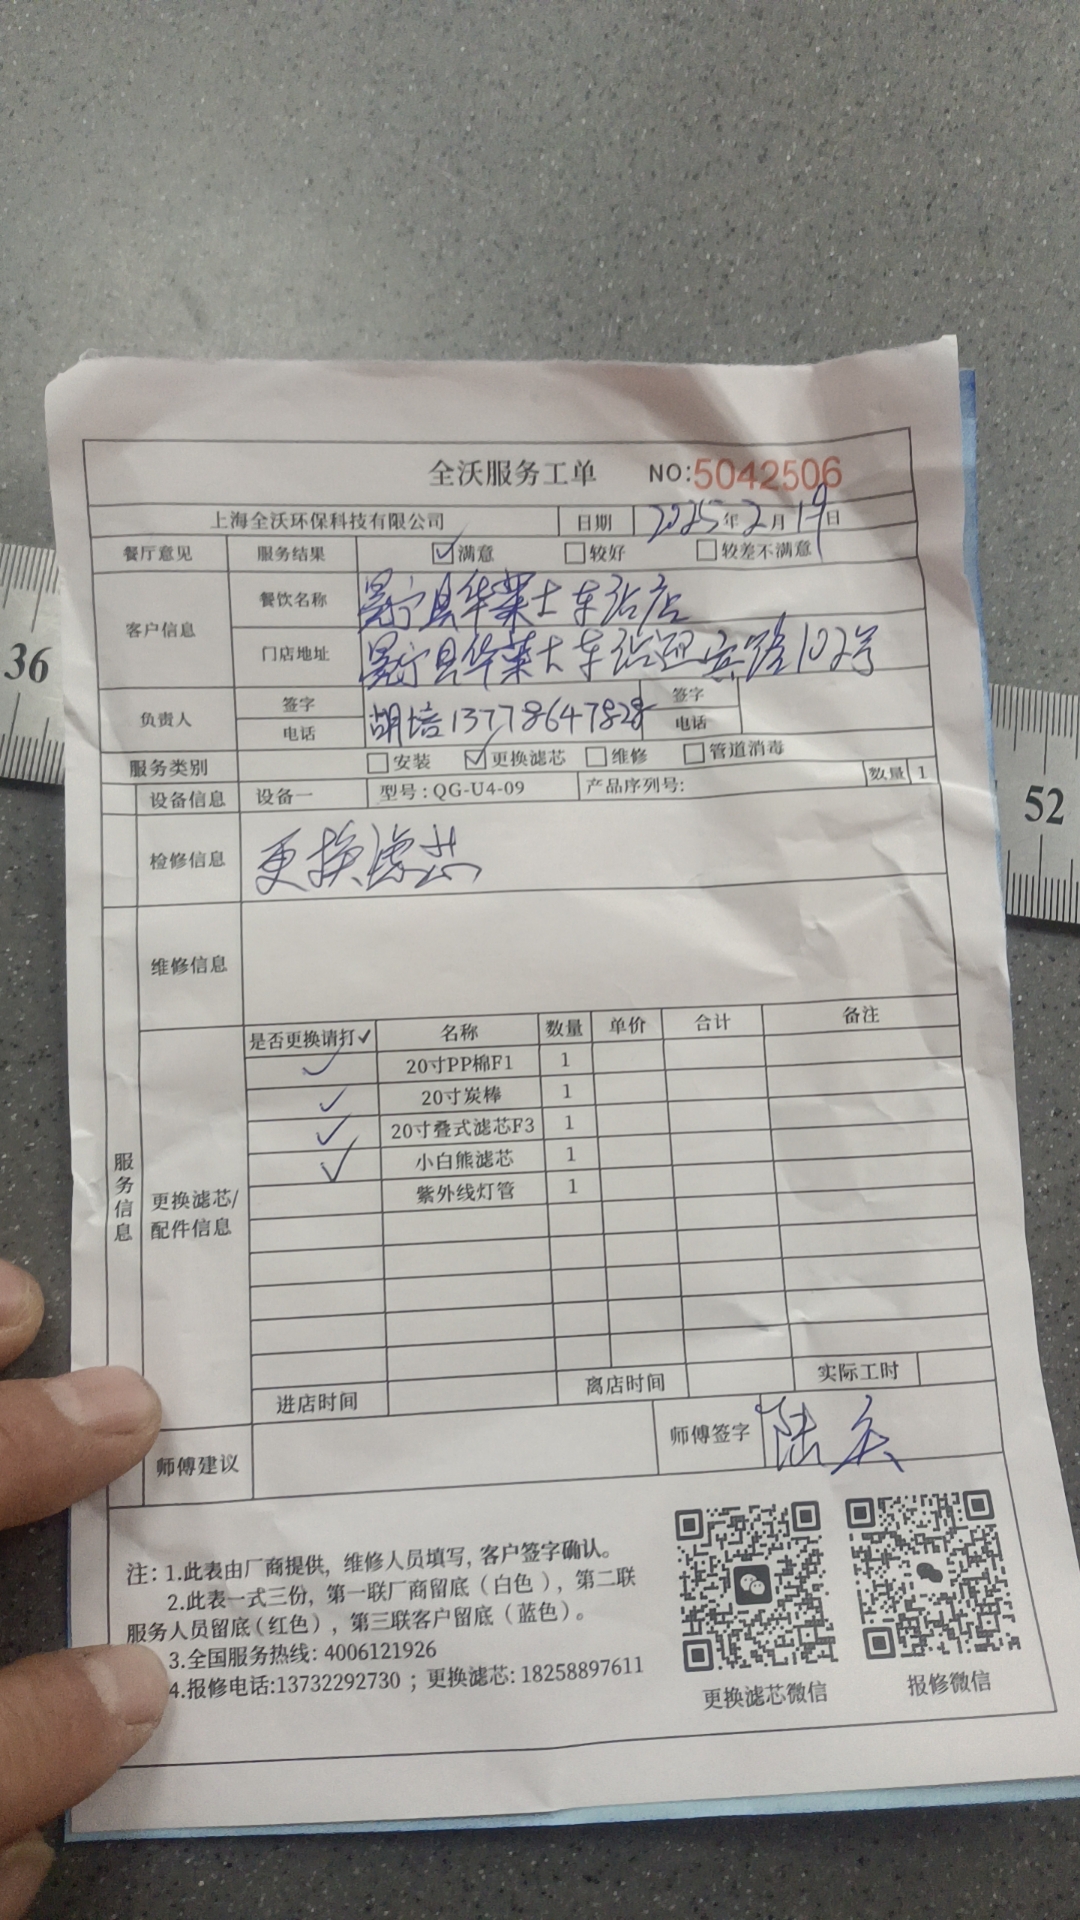 全沃服务工单 NO:5042506
上海全沃环保科技有限公司 日期 2025年2月19日
餐厅意见 服务结果 ☑满意 □较好 □较差不满意
客户信息 餐饮名称 冕宁县华莱士车站店
门店地址 冕宁县华莱士车站迎宾路102号
负责人 签字 电话 胡培 13778647828 签字 电话
服务类别 □安装 ☑更换滤芯 □维修 □管道消毒
设备信息 设备一 型号:QG-U4-09 产品序列号: 数量 1
检修信息 更换滤芯
维修信息
服务信息
更换滤芯/配件信息
是否更换请打✓ 名称 数量 单价 合计 备注
✓ 20寸PP棉F1 1
✓ 20寸炭棒 1
✓ 20寸叠式滤芯F3 1
✓ 小白熊滤芯 1
紫外线灯管 1
进店时间 离店时间 实际工时
师傅建议 师傅签字 陆
注: 1.此表由厂商提供，维修人员填写, 客户签字确认。
2.此表一式三份，第一联厂商留底（白色 ），第二联
服务人员留底(红色），第三联客户留底（蓝色）。
3.全国服务热线: 4006121926
4.报修电话:13732292730 ；更换滤芯: 18258897611
更换滤芯微信 报修微信
36
52